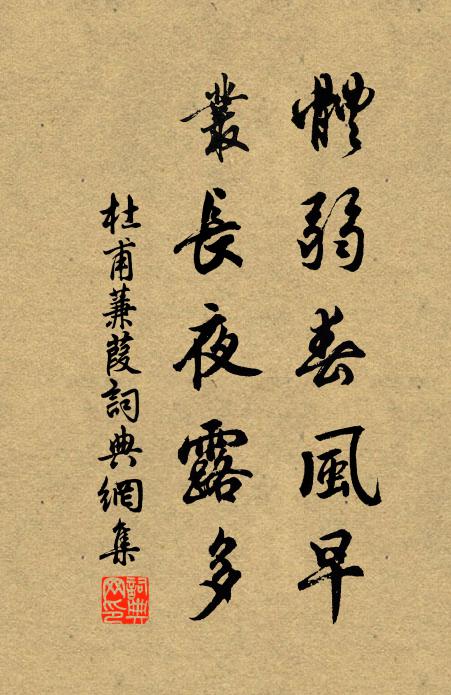 體弱春風早
叢長夜露多
杜甫蒹葭詞典網集
詞典网印